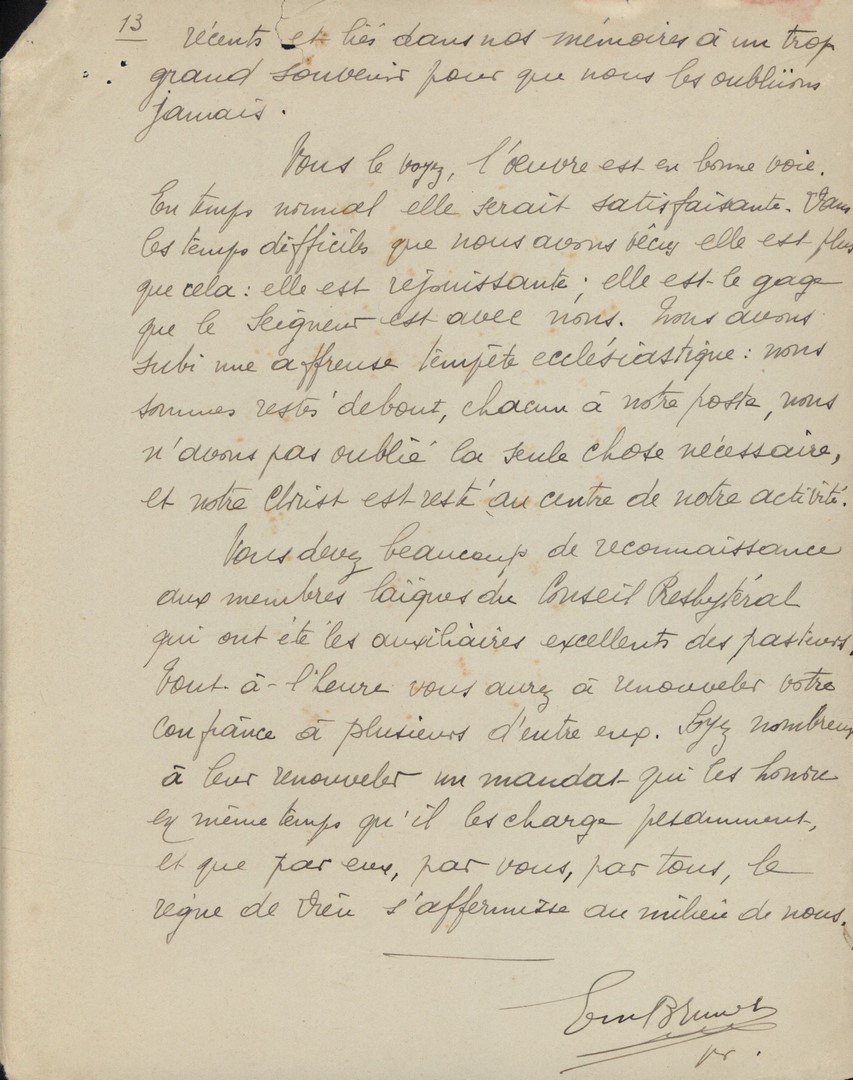 13
récents et liés dans nos mémoires à un trop
grand souvenir pour que nous les oubliions
jamais.
Vous le voyez, l'œuvre est en bonne voie.
En temps normal elle serait satisfaisante. Dans
les temps difficiles que nous avons vécus elle est plus
que cela : elle est réjouissante ; elle est le gage
que le Seigneur est avec nous. Nous avons
subi une affreuse tempête ecclésiastique : nous
sommes restés debout, chacun à notre poste, nous
n'avons pas oublié la seule chose nécessaire,
et notre Christ est resté au centre de notre activité.
Vous devez beaucoup de reconnaissance
aux membres laïques du Conseil Presbytéral
qui ont été les auxiliaires excellents des pasteurs.
Tout-à-l'heure vous aurez à renouveler votre
confiance à plusieurs d'entre eux. Soyez nombreux
à leur renouveler un mandat qui les honore
en même temps qu'il les charge pesamment,
et que par eux, par vous, par tous, le
règne de Dieu s'affermisse au milieu de nous.